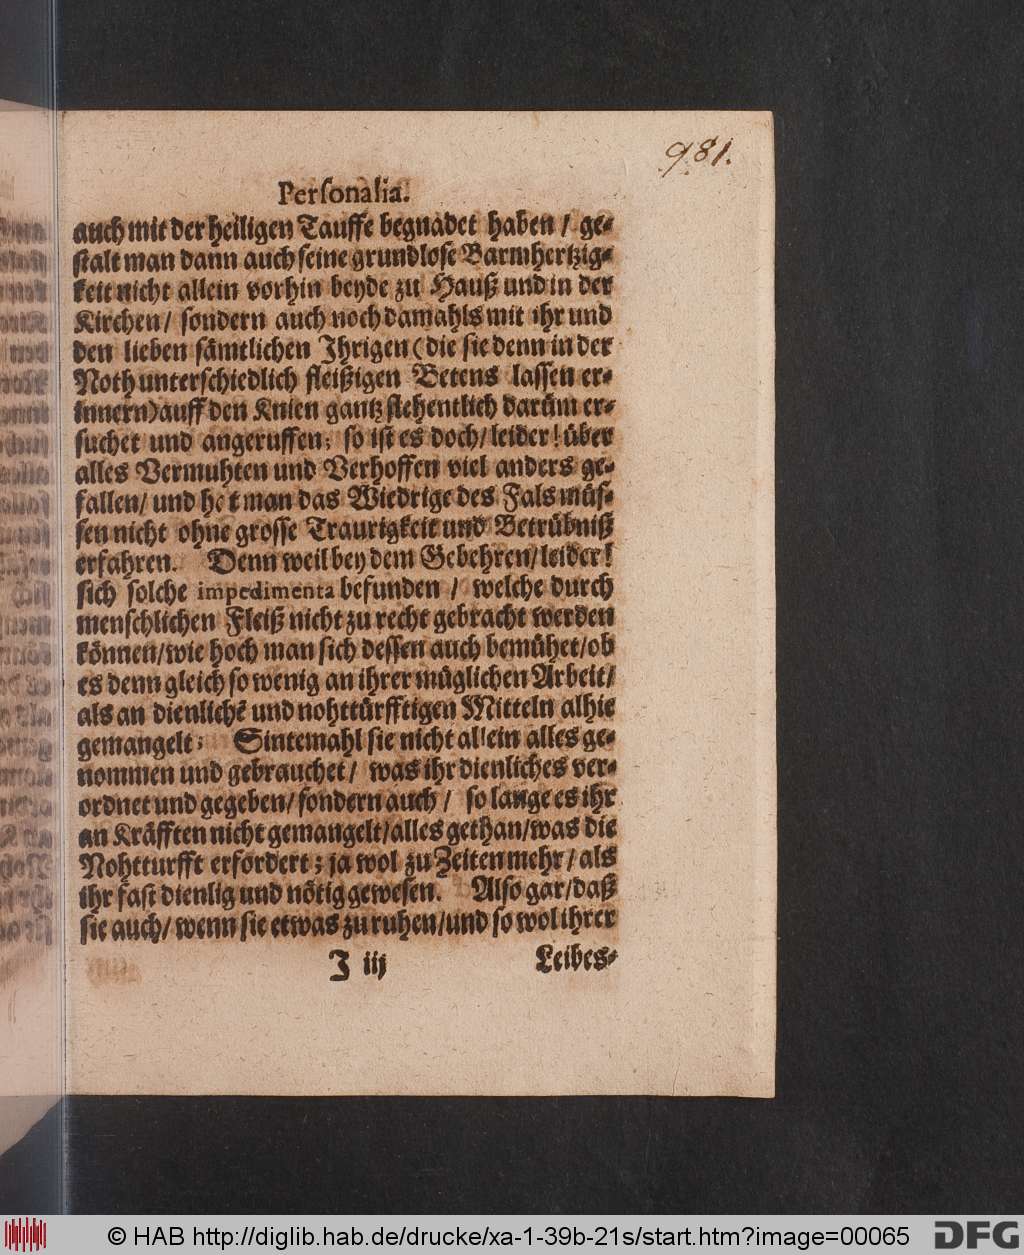 981.
Perſonalia.
auch mit der heiligen Tauffe begnadet haben / ge-
ſtalt man dann auch ſeine grundloſe Barmhertzig-
keit nicht allein vorhin beyde zu Hauß und in der
Kirchen / ſondern auch noch damahls mit ihr und
den lieben ſämtlichen Ihrigen (die ſie denn in der
Noth unterſchiedlich fleißigen Betens laſſen er-
innern) auff den Knien gantz flehentlich darüm er-
ſuchet und angeruffen; ſo iſt es doch / leider! über
alles Vermuhten und Verhoffen viel anders ge-
fallen / und hat man das Wiedrige des Fals müſ-
ſen nicht ohne groſſe Traurigkeit und Betrübniß
erfahren. Denn weil bey dem Gebehren / leider!
ſich ſolche impedimenta befunden / welche durch
menſchlichen Fleiß nicht zu recht gebracht werden
können / wie hoch man ſich deſſen auch bemühet / ob
es denn gleich ſo wenig an ihrer müglichen Arbeit /
als an dienlichē und nohttürfftigen Mitteln alhie
gemangelt; Sintemahl ſie nicht allein alles ge-
nommen und gebrauchet / was ihr dienliches ver-
ordnet und gegeben / ſondern auch / ſo lange es ihr
an Kräfften nicht gemangelt / alles gethan / was die
Nohtturfft erfordert; ja wol zu Zeiten mehr / als
ihr faſt dienlig und nötig geweſen. Alſo gar / daß
ſie auch / wenn ſie etwas zu ruhen / und ſo wol ihrer
J iij Leibes-
© HAB http://diglib.hab.de/drucke/xa-1-39b-21s/start.htm?image=00065
DFG